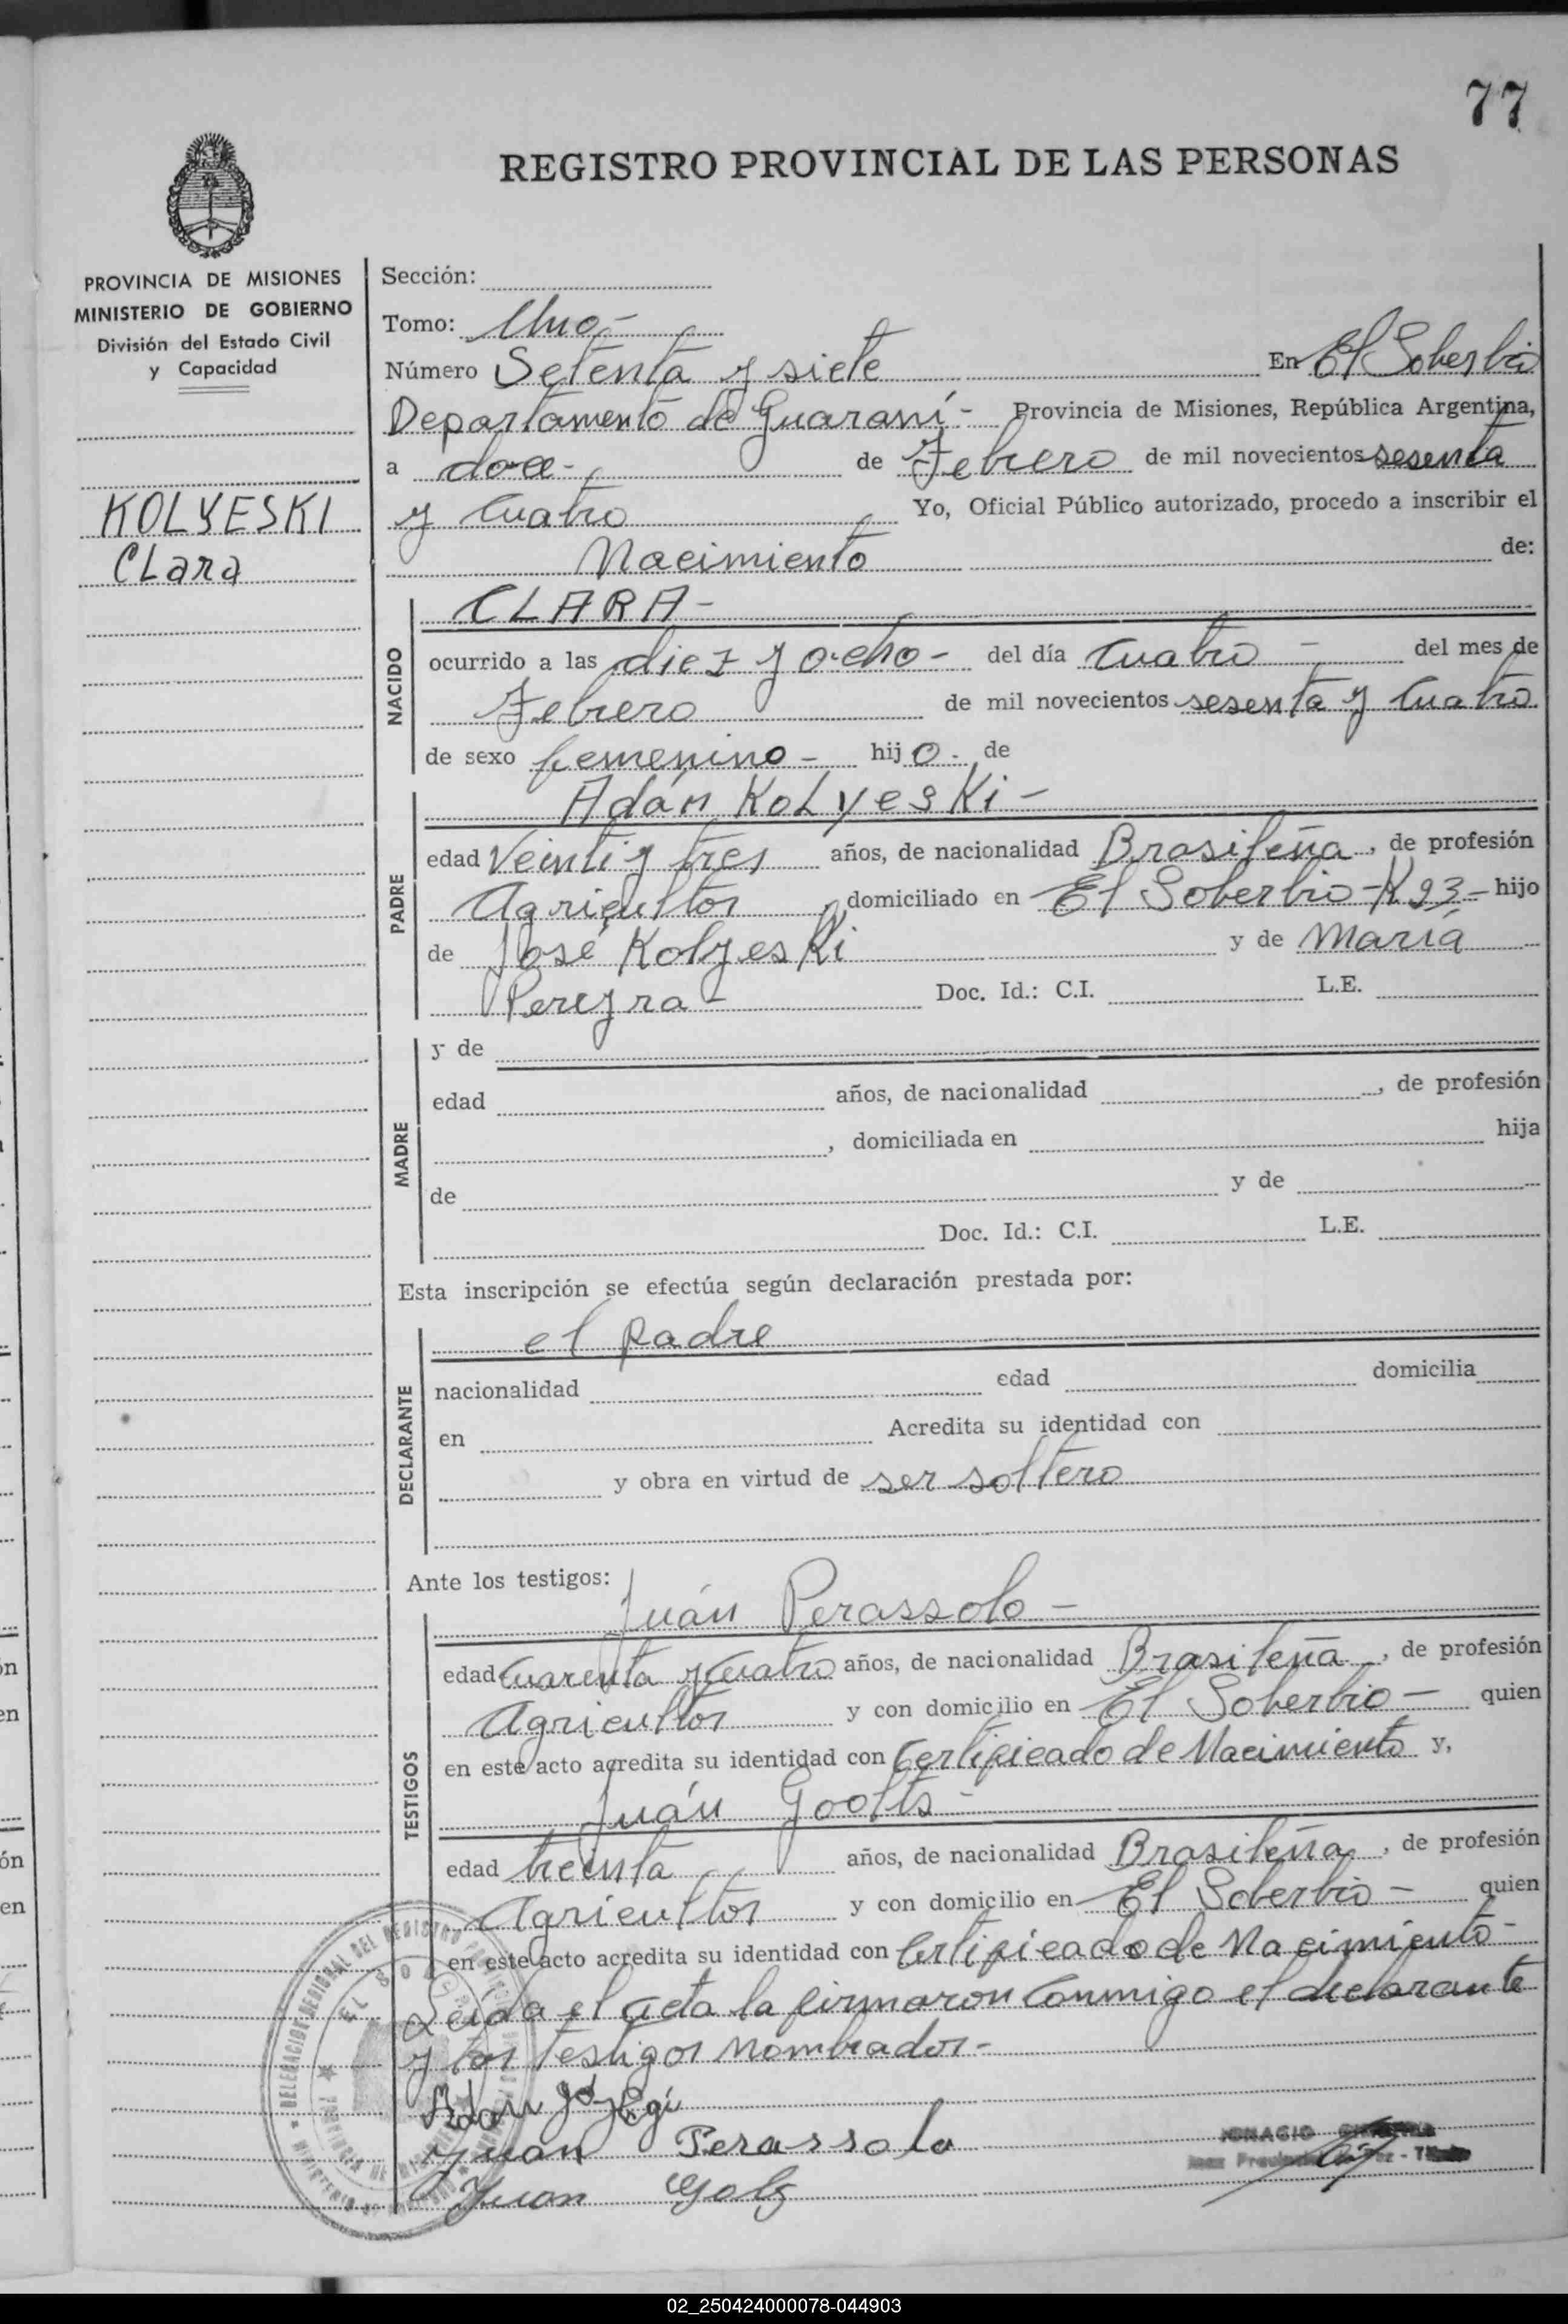 77
REGISTRO PROVINCIAL DE LAS PERSONAS
PROVINCIA DE MISIONES
MINISTERIO DE GOBIERNO
División del Estado Civil
y Capacidad
KOLYESKI
CLara
Sección:
Tomo: Uno-
Número Setenta y siete En El Soberbio
Departamento de Guaraní - Provincia de Misiones, República Argentina,
a doce- de Febrero de mil novecientos sesenta
y Cuatro Yo, Oficial Público autorizado, procedo a inscribir el
Nacimiento de:
NACIDO
CLARA-
ocurrido a las diez y ocho - del día Cuatro - del mes de
Febrero de mil novecientos sesenta y Cuatro
de sexo femenino - hijo - de
PADRE
Adán KoLyesKi -
edad Veinti y tres años, de nacionalidad Brasileña, de profesión
Agricultor, domiciliado en El Soberbio - K 93 - hijo
de José KolyesKi y de María
Pereyra - Doc. Id.: C.I. L.E.
MADRE
y de
edad años, de nacionalidad , de profesión
, domiciliada en hija
de y de
Doc. Id.: C.I. L.E.
Esta inscripción se efectúa según declaración prestada por:
DECLARANTE
el padre
nacionalidad edad domicilia
en Acredita su identidad con
y obra en virtud de ser soltero
Ante los testigos:
TESTIGOS
Juán Perassolo -
edad Cuarenta y Cuatro años, de nacionalidad Brasileña, de profesión
Agricultor y con domicilio en El Soberbio - quien
en este acto acredita su identidad con Certificado de Nacimiento y,
Juán Goolts -
edad treinta años, de nacionalidad Brasileña, de profesión
Agricultor y con domicilio en El Soberbio - quien
en este acto acredita su identidad con Certificado de Nacimiento -
Leída el acta la firmaron Conmigo el declarante
y los testigos nombrados -
Adan
Juan Perassolo
Juan Golz
IGNACIO
DELEGACION REGIONAL DEL REGISTRO
EL SO
02_250424000078-044903